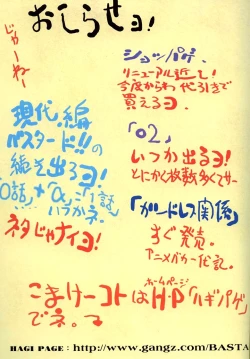 おしらせヨ!
じゃーねー
ショッパゲ.
リニューアル近し!
今度からわ 代引きで
買えるヨ.
「02」
いつか出るヨ!
とにかく枚数多くてサー
「ガードレス関係」
すぐ発売。
アニメガカー伝記。
現代編
バスタード!!の
編も出るヨ!
0話」+「α」=「1話」
いつかネ.
ネタじゃナイヨ!
こまけーコトは
ホームページ
H・P「ハギパゲ」
でネ。
HAGI PAGE : http://www.gangz.com/BASTA